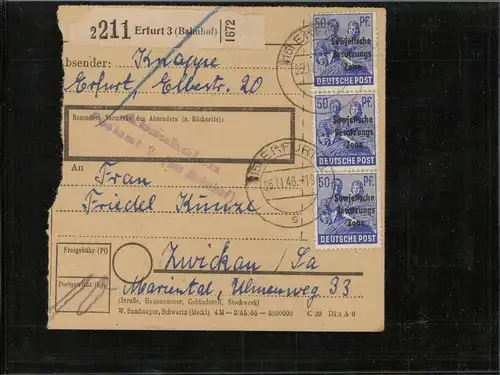 2 211 Erfurt 3 (Bahnhof) 1672
Absender: Knappe
Erfurt, Elbestr. 20
Besondere Vermerke des Absenders (s. Rückseite):
An Frau
Friedel Kunze
Freigebühr (Pf)
Zwickau / Sa
Postgewicht (kg)
Mariental, Ulmenweg 33
(Straße, Hausnummer, Gebäudeteil, Stockwerk)
W. Sandmeyer, Schwerin (Meckl) 4 M
C 29 Din A 6
50 PF.
Sowjetische
Besatzungs
Zone
DEUTSCHE POST
50 PF.
Sowjetische
Besatzungs
Zone
DEUTSCHE POST
50 PF.
Sowjetische
Besatzungs
Zone
DEUTSCHE POST
ERFURT